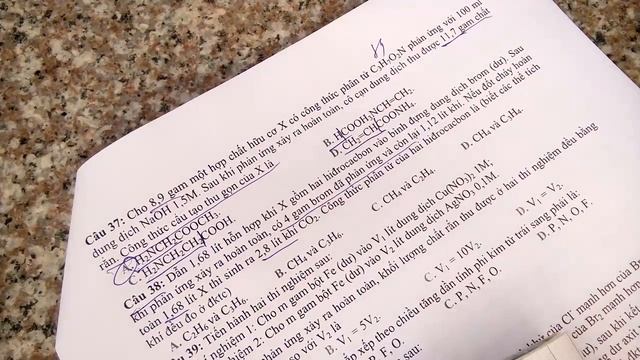 Câu 37: Cho 8,9 gam một hợp chất hữu cơ X có công thức phân tử C3H7O2N phản ứng với 100 ml
dung dịch NaOH 1,5M. Sau khi phản ứng xảy ra hoàn toàn, cô cạn dung dịch thu được 11,7 gam chất
rắn. Công thức cấu tạo thu gọn của X là
A. H2NCH2COOCH3. B. HCOOH3NCH=CH2.
C. H2NCH2CH2COOH. D. CH2=CHCOONH4.
Câu 38: Dẫn 1,68 lít hỗn hợp khí X gồm hai hidrocacbon vào bình đựng dung dịch brom (dư). Sau
khi phản ứng xảy ra hoàn toàn, có 4 gam brom đã phản ứng và còn lại 1,12 lít khí. Nếu đốt cháy hoàn
toàn 1,68 lít X thì sinh ra 2,8 lít khí CO2. Công thức phân tử của hai hidrocacbon là (biết các thể tích
khí đều đo ở đktc)
A. C2H6 và C3H6. B. CH4 và C3H6. C. CH4 và C2H4. D. CH4 và C3H4.
39: Tiến hành hai thí nghiệm sau:
nghiệm 1: Cho m gam bột Fe (dư) vào V1 lít dung dịch Cu(NO3)2 1M;
nghiệm 2: Cho m gam bột Fe (dư) vào V2 lít dung dịch AgNO3 0,1M.
phản ứng xảy ra hoàn toàn, khối lượng chất rắn thu được ở hai thí nghiệm đều bằng
so với V2 là
B. V1 = 5V2. C. V1 = 10V2. D. V1 = V2.
xếp theo chiều tăng dần tính phi kim từ trái sang phải là:
C. P, N, F, O. D. P, N, O, F.